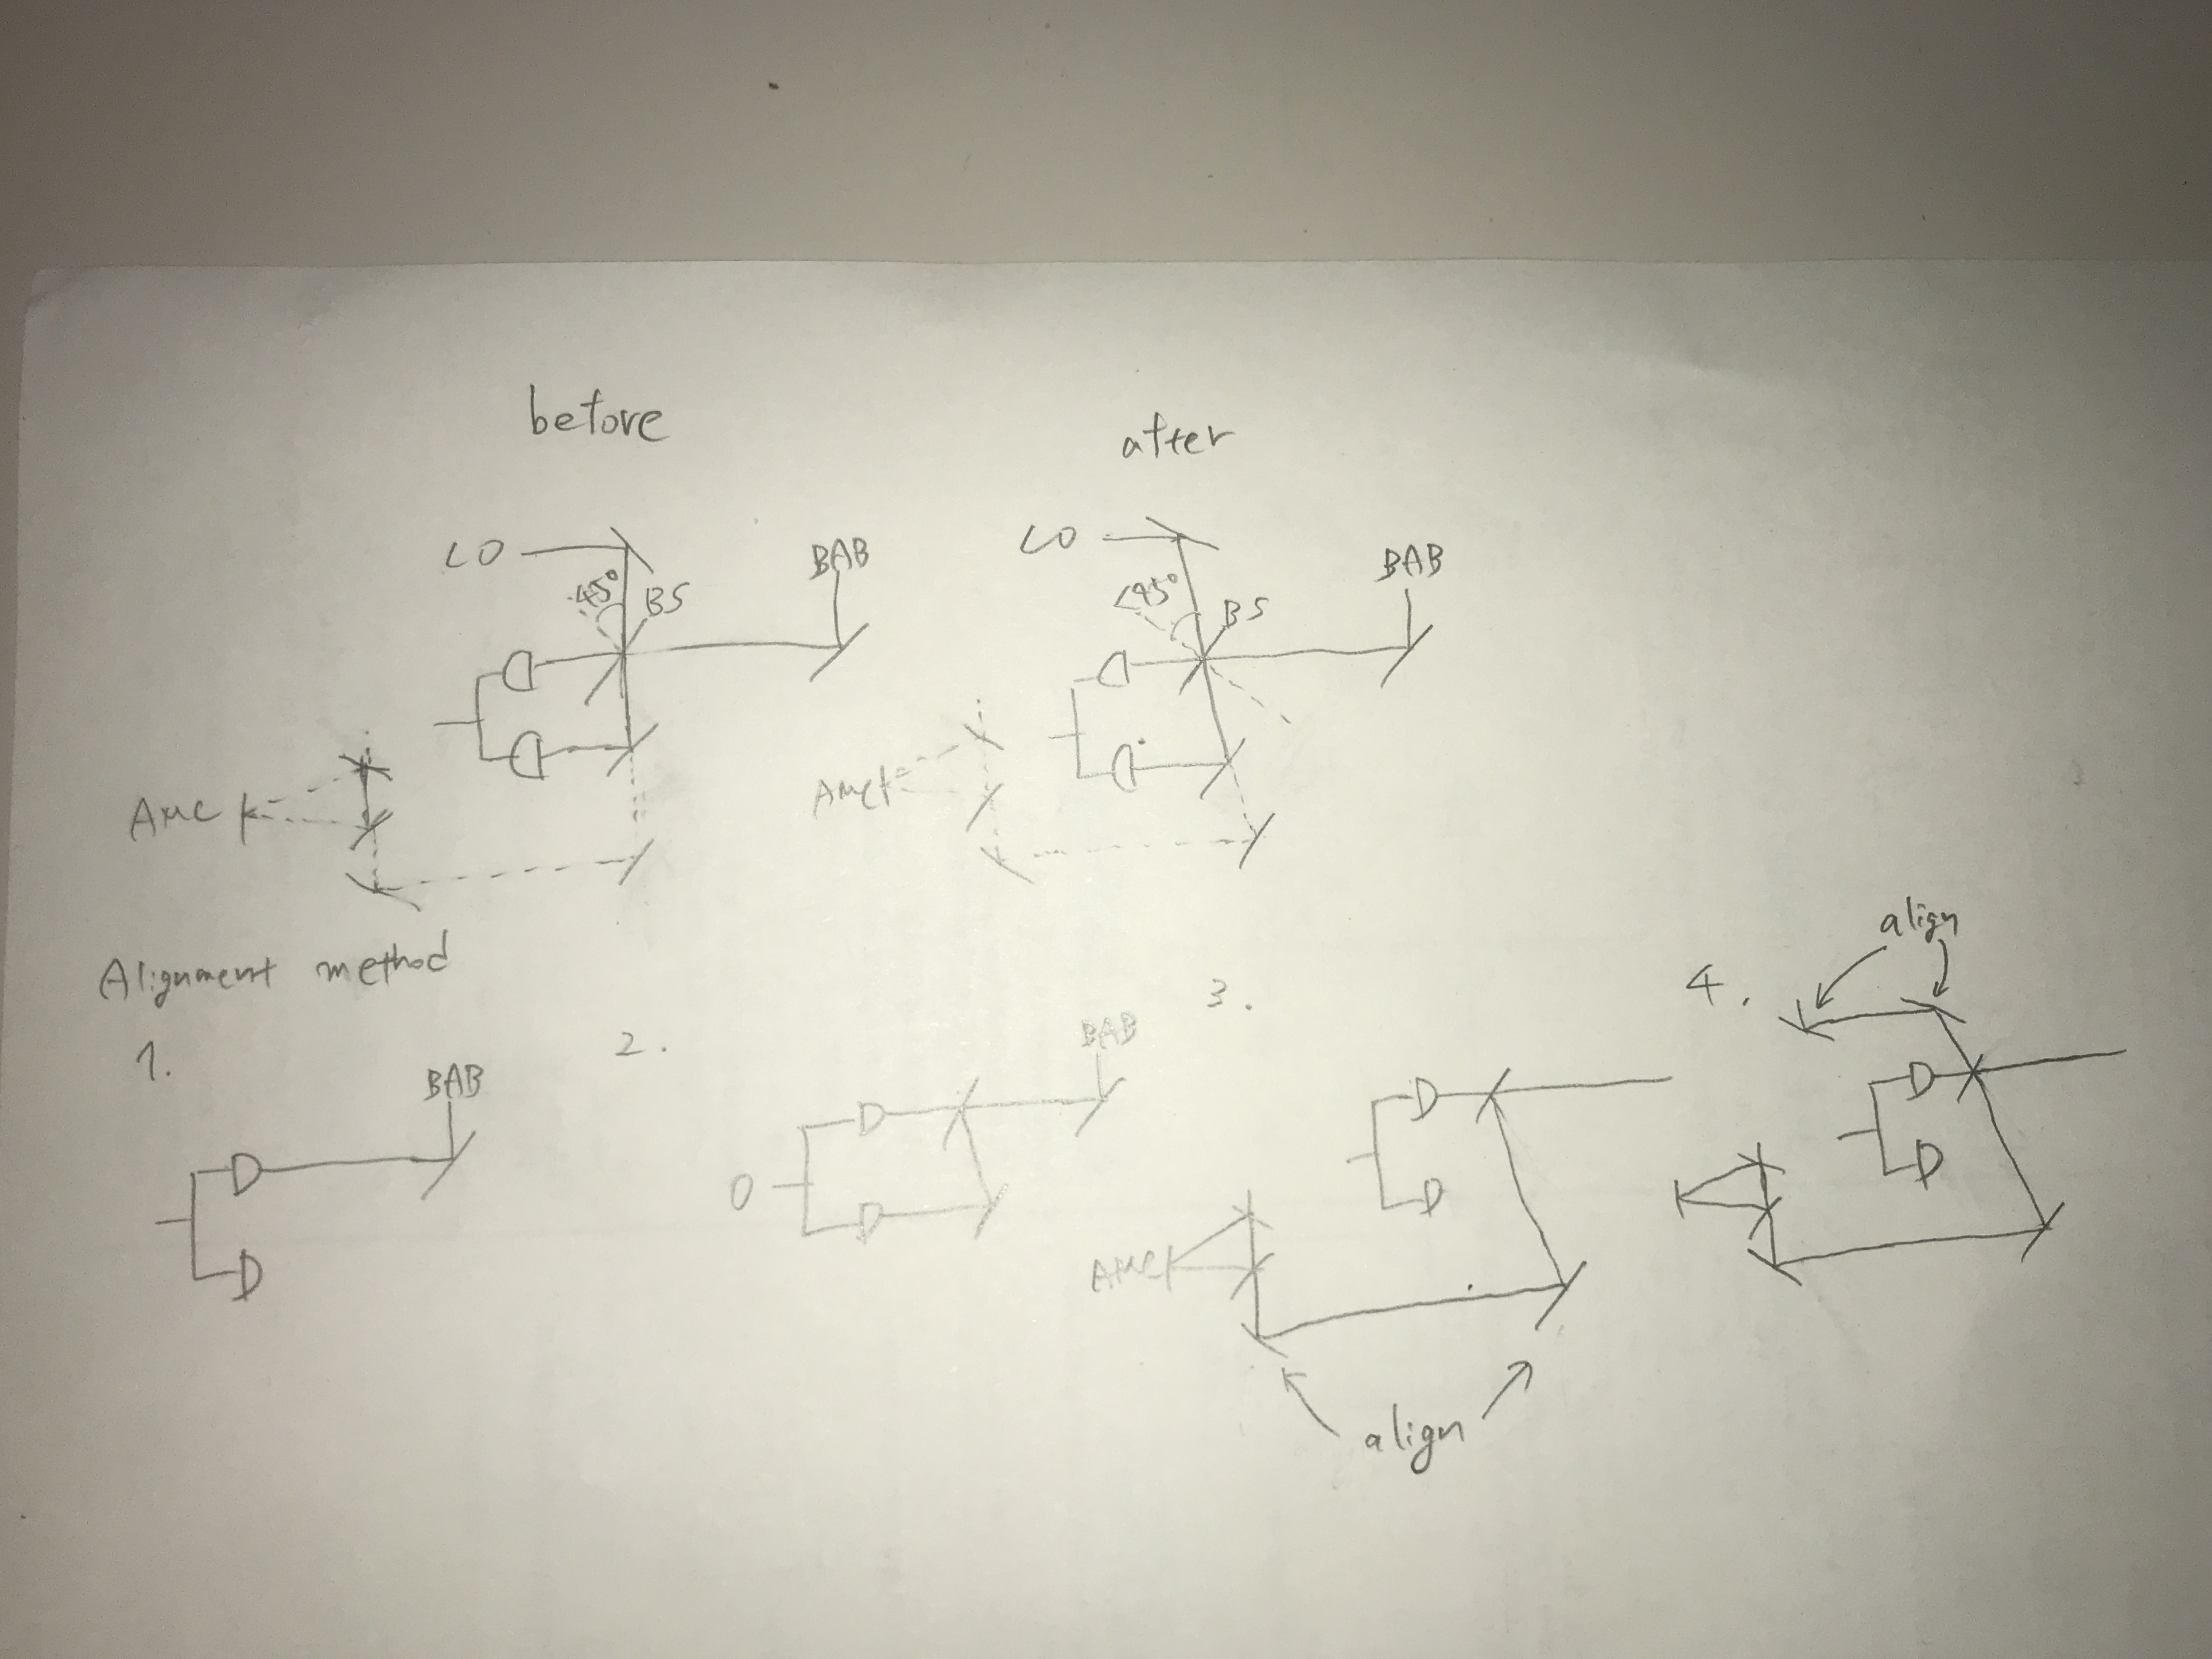 before
after
LO
45°
BS
BAB
AMC
LO
<45°
BS
BAB
AMC
Alignment method
1.
BAB
2.
BAB
0
3.
AMC
align
4.
align